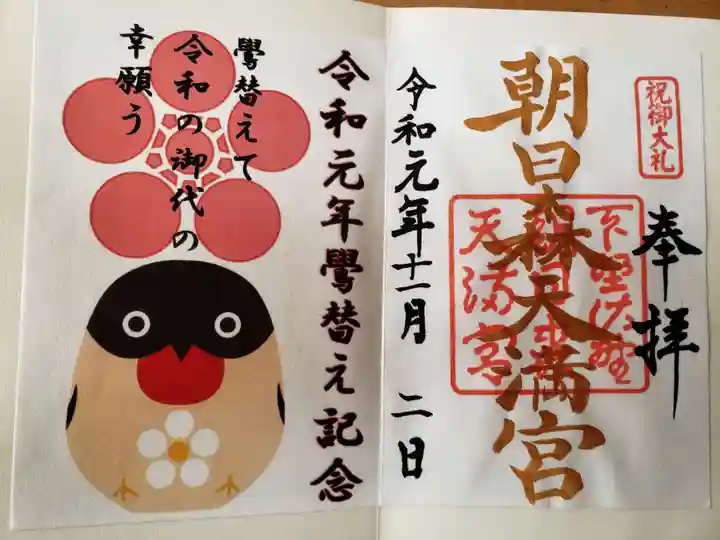 奉拝
祝御大礼
朝日森天満宮
下野佐野
天満宮
令和元年十一月 二日
令和元年鷽替え記念
鷽替えて
令和の御代の
幸願う